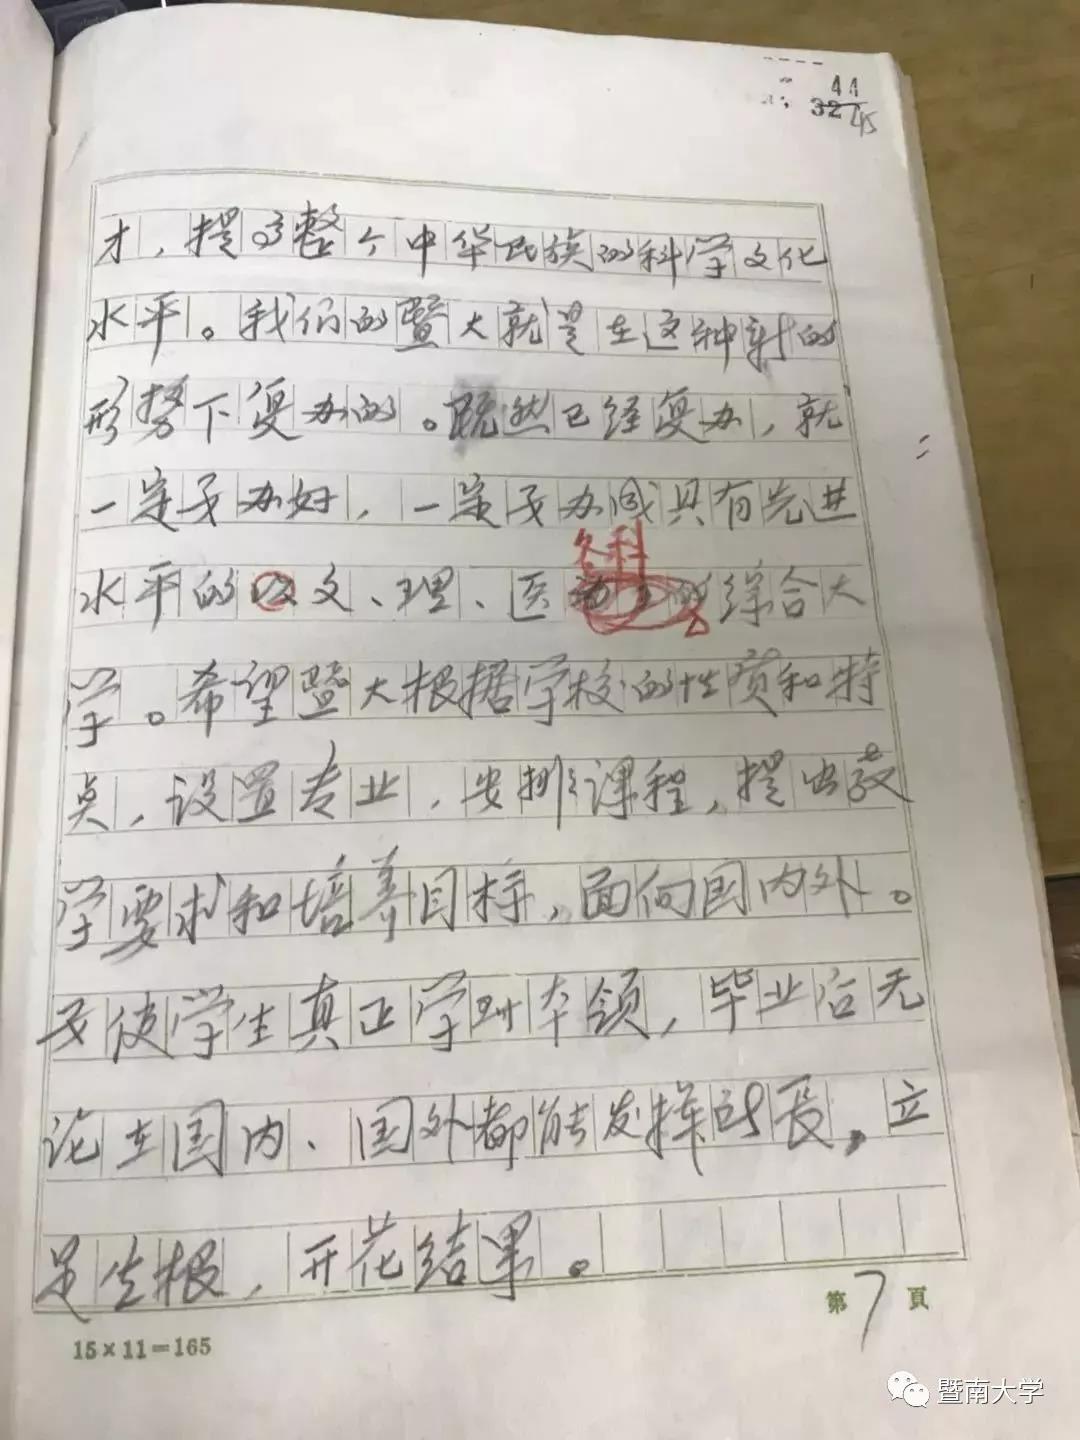 44
327
45
才，提高整个中华民族的科学文化
水平。我们的暨大就是在这种新的
形势下复办的。既然已经复办，就
一定要办好，一定要办成具有先进
各科
水平的以文、理、医为主的综合大
学。希望暨大根据学校的性质和特
点，设置专业，安排课程，提出教
学要求和培养目标，面向国内外。
要使学生真正学到本领，毕业后无
论在国内、国外都能发挥所长，立
足生根，开花结果。
第7頁
15×11=165
暨南大学